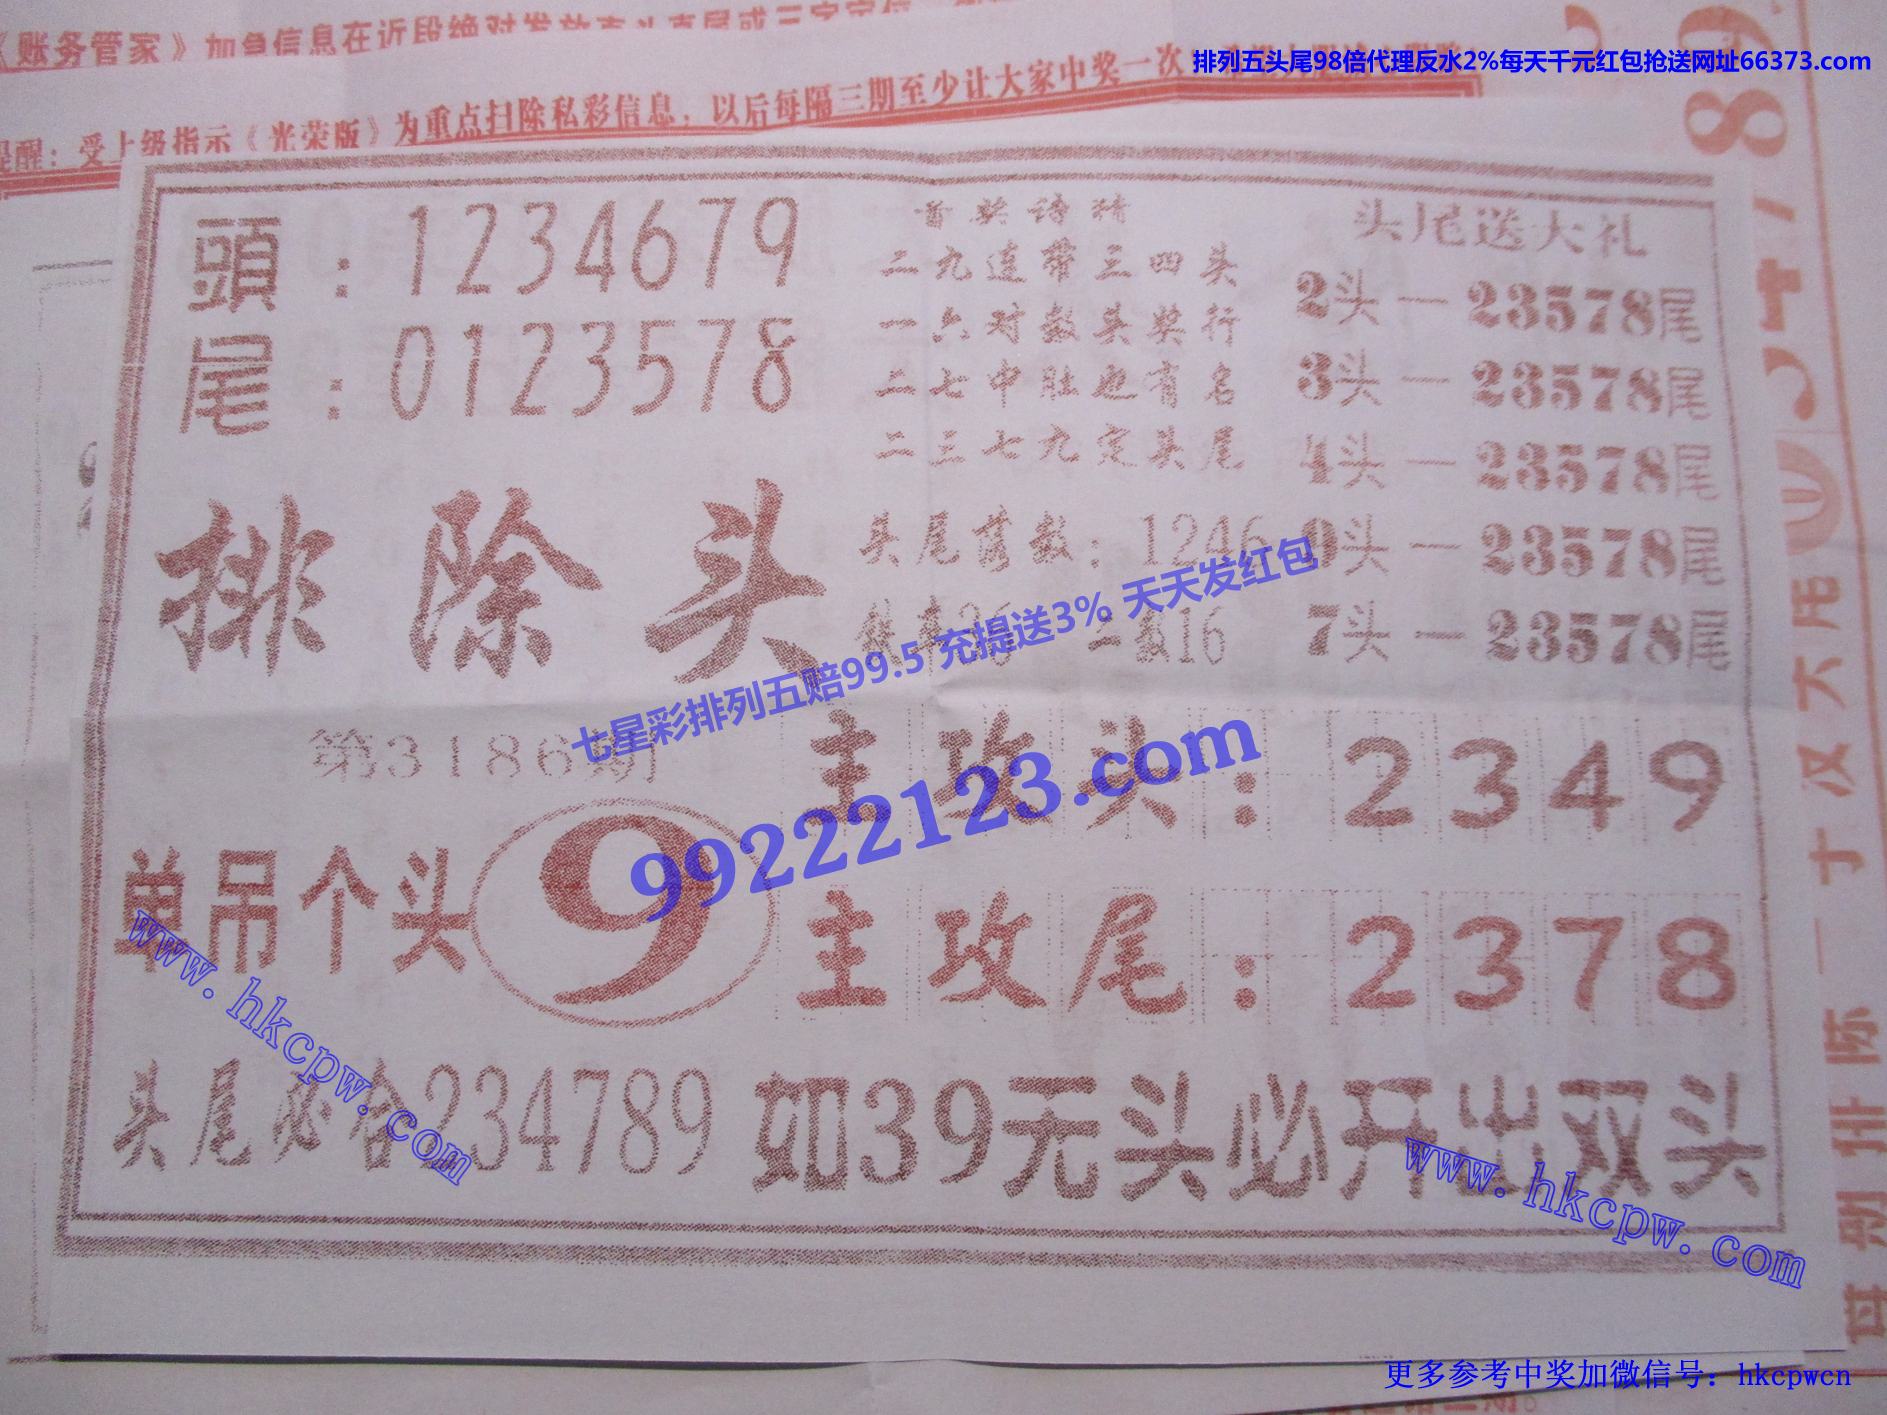 《账务管家》加急信息在近段绝对发放
排列五头尾98倍代理反水2%每天千元红包抢送网址66373.com
受上级指示《光荣版》为重点扫除私彩信息，以后每隔三期至少让大家中奖一次
頭：1234679
尾：0123578
排除头
首奖诗猜
二九连带三四头
一六对数头奖行
二七中肚也有名
二三七九定头尾
头尾落数：1246
二数16
头尾送大礼
2头一23578尾
3头一23578尾
4头一23578尾
9头一23578尾
7头一23578尾
七星彩排列五赔99.5 充提送3% 天天发红包
99222123.com
第3186期
单吊个头9
主攻头：2349
主攻尾：2378
头尾必合234789 如39无头必开出双头
www.hkcpw.com
www.hkcpw.com
更多参考中奖加微信号：hkcpwcn